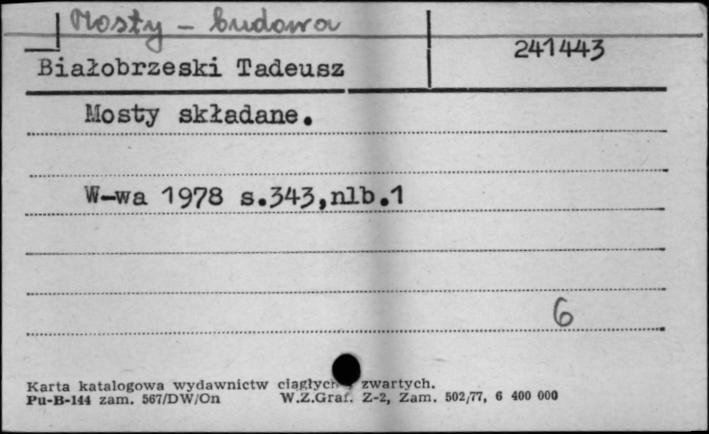 Mosty - budowa
241443
Białobrzeski Tadeusz
Mosty składane.
W-wa 1978 s.343,nlb.1
6
Karta katalogowa wydawnictw ciągłych i zwartych.
Pu-B-144 zam. 567/DW/On W.Z.Graf. Z-2, Zam. 502/77, 6 400 000